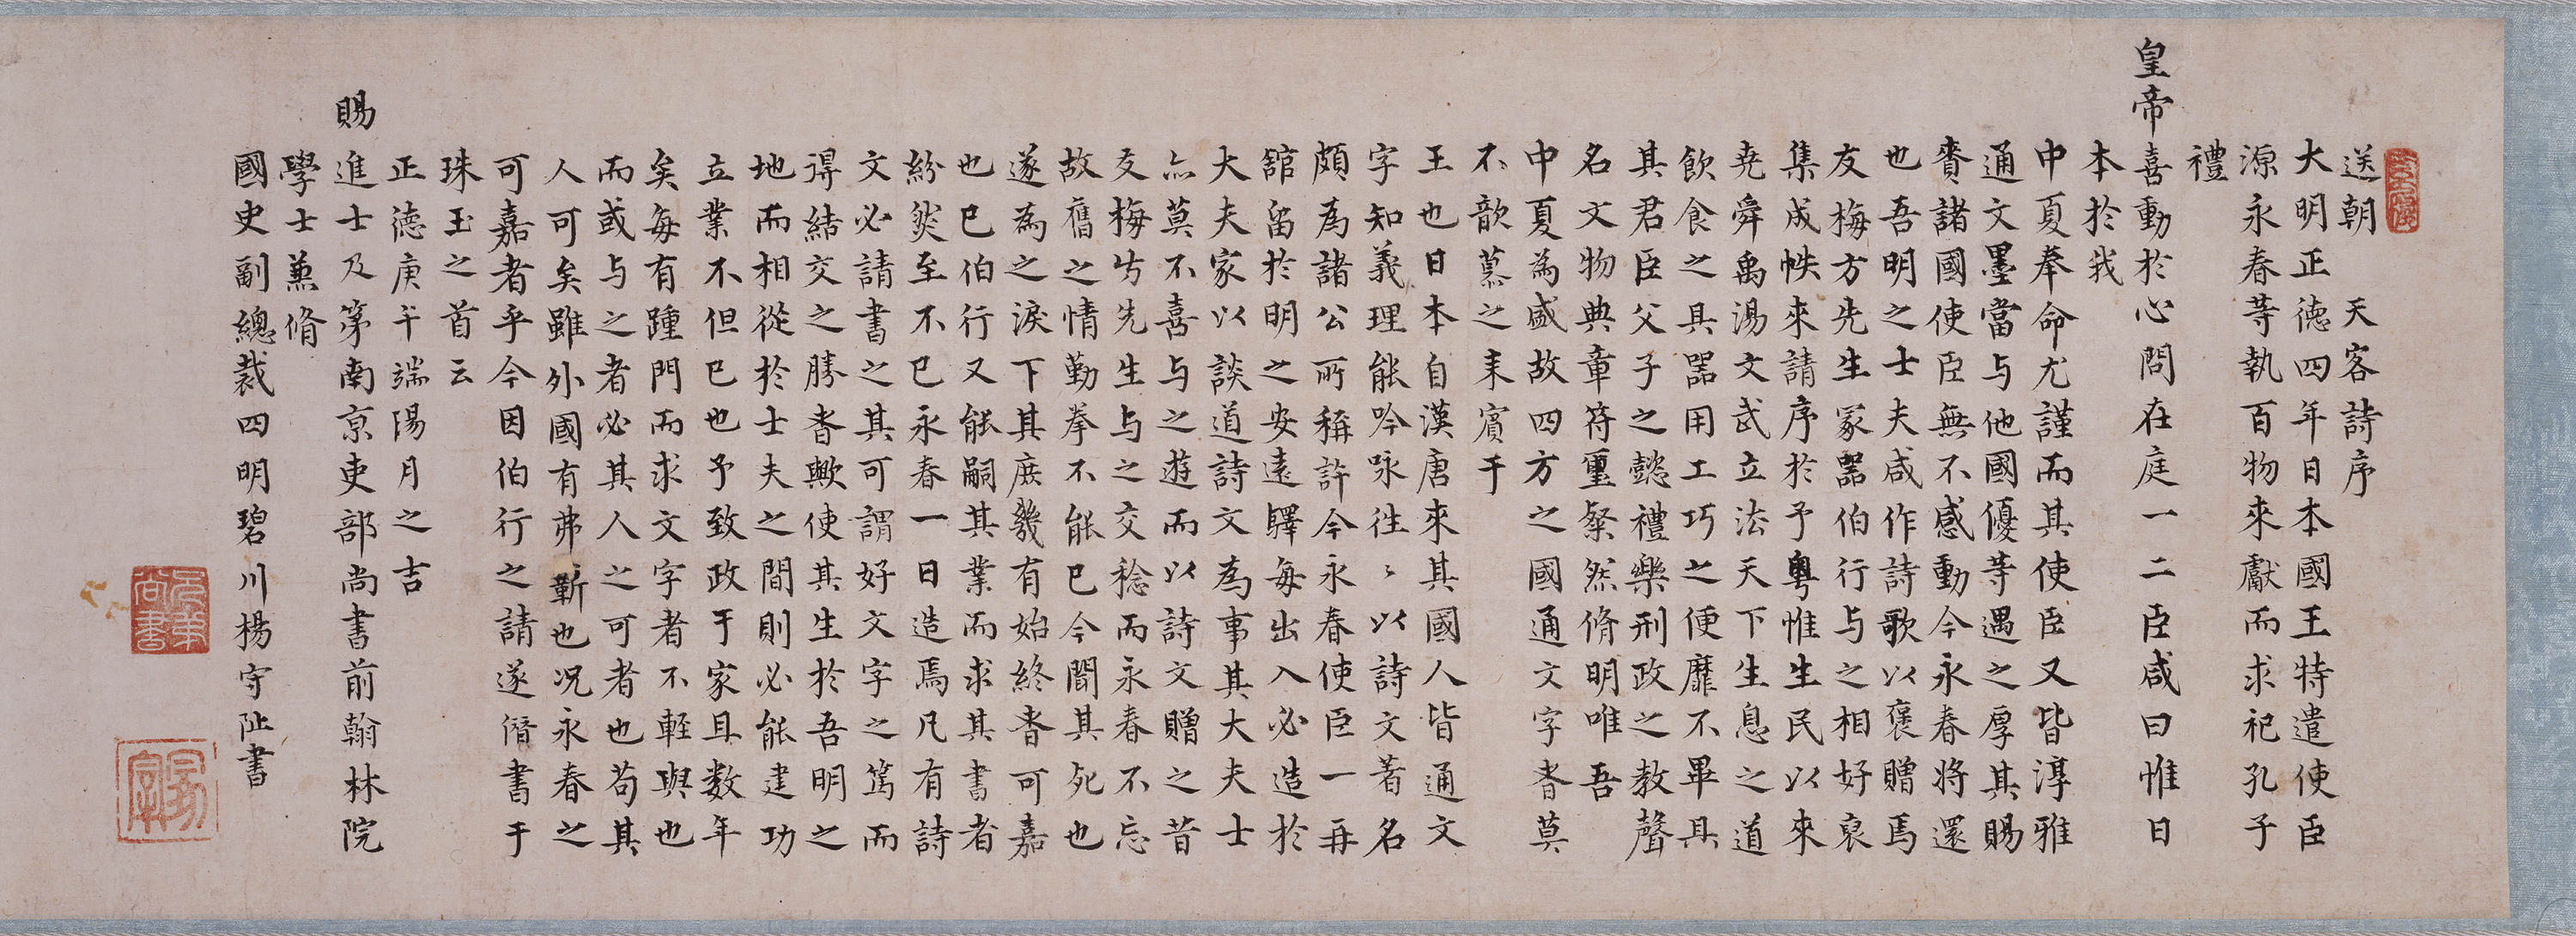 送朝 天客詩序
大明正德四年日本國王特遣使臣
源永春等執百物來獻而求祀孔子
禮
皇帝喜動於心問在庭一二臣咸曰惟日
本於我
中夏奉命尤謹而其使臣又皆淳雅
通文墨當与他國優等遇之厚其賜
賚諸國使臣無不感動今永春將還
也吾明之士夫咸作詩歌以褒贈焉
友梅方先生冢器伯行与之相好裒
集成帙來請序於予粵惟生民以來
堯舜禹湯文武立法天下生息之道
飲食之具器用工巧之便靡不畢具
其君臣父子之懿禮樂刑政之教聲
名文物典章符璽粲然脩明唯吾
中夏為盛故四方之國通文字者莫
不歆慕之来賓于
王也日本自漢唐來其國人皆通文
字知義理能吟咏往〻以詩文著名
頗為諸公所稱許今永春使臣一再
舘留於明之安遠驛每出入必造於
大夫家以談道詩文為事其大夫士
亦莫不喜与之遊而以詩文贈之昔
友梅方先生与之交稔而永春不忘
故舊之情勤拳不能已今聞其死也
遂為之淚下其庶幾有始終者可嘉
也已伯行又能嗣其業而求其書者
紛然至不已永春一日造焉凡有詩
文必請書之其可謂好文字之篤而
得結交之勝者歟使其生於吾明之
地而相從於士夫之間則必能建功
立業不但已也予致政于家且数年
矣每有踵門而求文字者不輕與也
而或与之者必其人之可者也苟其
人可矣雖外國有弗靳也况永春之
可嘉者乎今因伯行之請遂僭書于
珠玉之首云
正德庚午端陽月之吉
賜進士及第南京吏部尚書前翰林院
學士兼脩
國史副總裁四明碧川楊守阯書